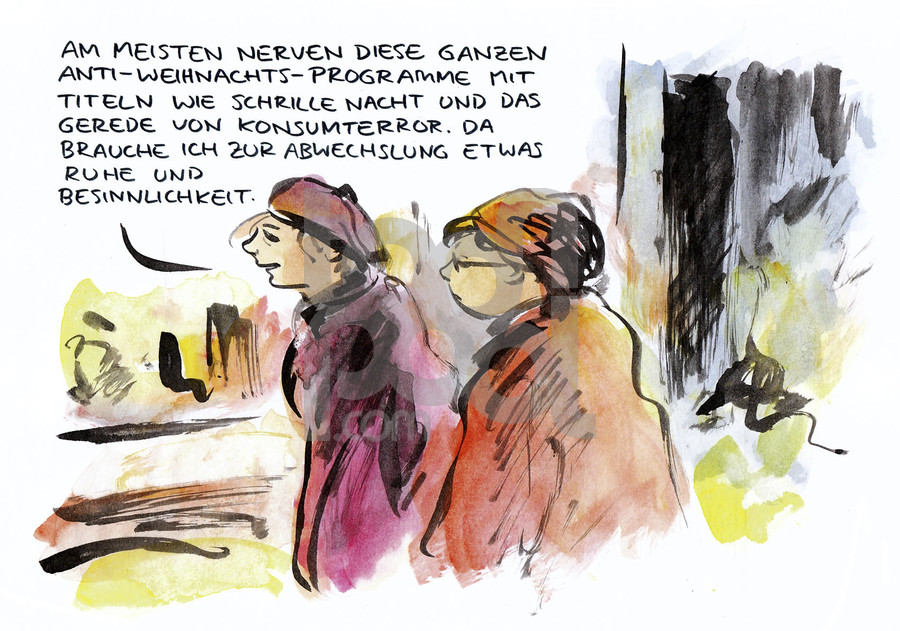 AM MEISTEN NERVEN DIESE GANZEN
ANTI-WEIHNACHTS-PROGRAMME MIT
TITELN WIE SCHRILLE NACHT UND DAS
GEREDE VON KONSUMTERROR. DA
BRAUCHE ICH ZUR ABWECHSLUNG ETWAS
RUHE UND
BESINNLICHKEIT.
.com